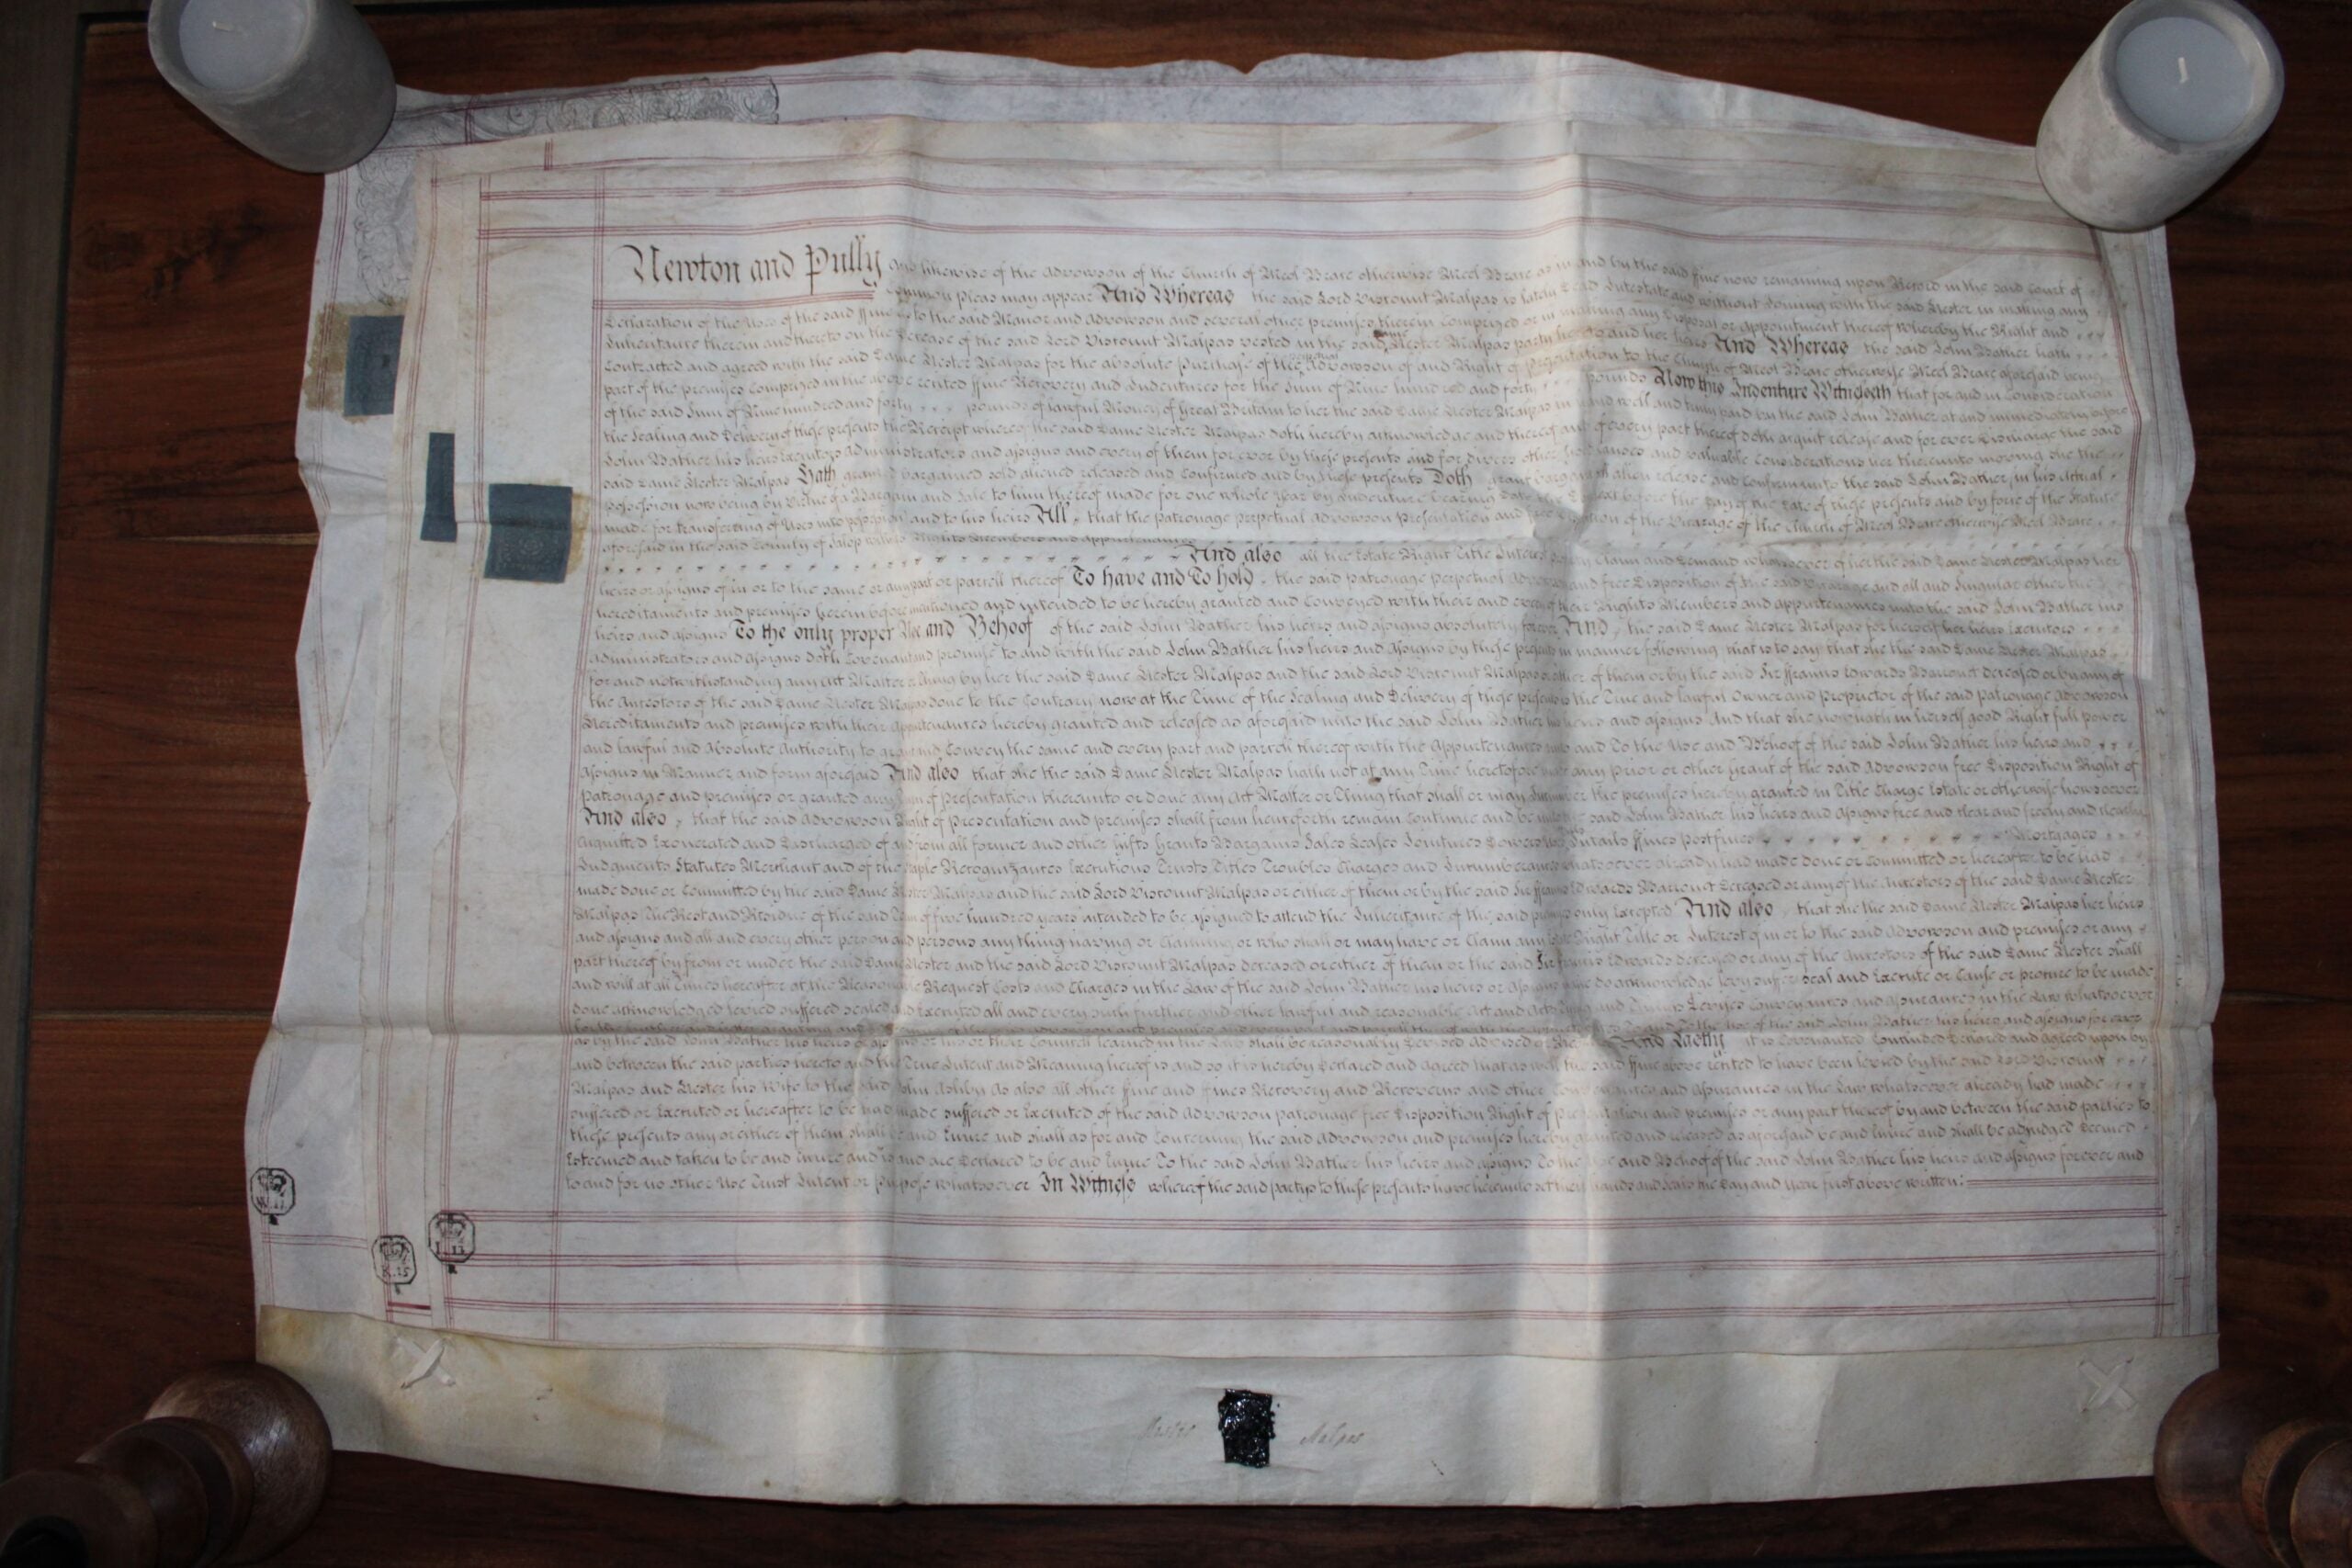 Newton and Pully and likewise of the Advowson of the Church of Meol Brace otherwise Meol Brace as in and by the said fine now remaining upon Record in the said Court of
Common Pleas may appear And Whereas the said Lord Viscount Malpas is lately Dead Intestate and without Joining with the said Hester in making any
Declaration of the Uses of the said ffine as to the said Manor and Advowson and several other premises therein Comprized or in making any Disposal or appointment thereof whereby the Right and
Inheritance therein and thereto on the Decease of the said Lord Viscount Malpas vested in the said Dame Hester Malpas party hereto and her heirs And Whereas the said John Bather hath
Contracted and agreed with the said Dame Hester Malpas for the absolute Purchase of the perpetual Advowson of and Right of Presentation to the Church of Meol Brace otherwise Meol Brace aforesaid being
part of the premises Comprized in the above recited ffine Recovery and Indentures for the Sum of Nine hundred and forty pounds Now this Indenture Witnesseth that for and in Consideration
of the said Sum of Nine hundred and forty pounds of lawful Money of Great Britain to her the said Dame Hester Malpas in hand well and truly paid by the said John Bather at and immediately before
the Sealing and Delivery of these presents the Receipt whereof the said Dame Hester Malpas doth hereby acknowledge and thereof and of every part thereof doth acquit release and for ever Discharge the said
John Bather his heirs Executors Administrators and assigns and every of them for ever by these presents and for divers other good Causes and valuable Considerations her thereunto moving She the
said Dame Hester Malpas Hath granted bargained sold aliened released and Confirmed and by these presents Doth grant bargain sell alien release and Confirm unto the said John Bather in his actual
possession now being by Virtue of a Bargain and Sale to him thereof made for one whole Year by Indenture bearing Date the Day next before the Day of the Date of these presents and by force of the Statute
made for transferring of Uses into possession and to his heirs All that the patronage perpetual Advowson Presentation and free Disposition of the Vicarage of the Church of Meol Brace otherwise Meol Brace
aforesaid in the said County of Salop with its Rights Members and appurtenances
And also all the Estate Right Title Interest property Claim and Demand whatsoever of her the said Dame Hester Malpas her
heirs or assigns of in or to the same or any part or parcell thereof To have and To hold the said patronage perpetual Advowson and free Disposition of the said Vicarage and all and Singular other the
hereditaments and premises herein before mentioned and intended to be hereby granted and Conveyed with their and every of their Rights Members and appurtenances unto the said John Bather his
heirs and assigns To the only proper Use and Behoof of the said John Bather his heirs and assigns absolutely forever And the said Dame Hester Malpas for herself her heirs Executors
administrators and assigns doth Covenant and promise to and with the said John Bather his heirs and assigns by these presents in manner following that is to say that she the said Dame Hester Malpas
for and notwithstanding any Act Matter or thing by her the said Dame Hester Malpas and the said Lord Viscount Malpas or either of them or by the said Sir ffrancis Edwards Baronet deceased or by any of
the Ancestors of the said Dame Hester Malpas done to the Contrary now at the Time of the Sealing and Delivery of these presents is the True and lawful Owner and Proprietor of the said Patronage Advowson
Hereditaments and premises with their appurtenances hereby granted and released as aforesaid unto the said John Bather his heirs and assigns And that she now hath in herself good Right full power
and lawful and Absolute Authority to grant and Convey the same and every part and parcell thereof with the Appurtenances unto and To the Use and Behoof of the said John Bather his heirs and
assigns in Manner and form aforesaid And also that she the said Dame Hester Malpas hath not at any Time heretofore made any prior or other Grant of the said Advowson free Disposition Right of
Patronage and premises or granted any Turn of Presentation thereunto or done any Act Matter or Thing that shall or may Incumber the premises hereby granted in Title Charge Estate or otherwise howsoever
And also that the said Advowson Right of Presentation and premises shall from henceforth remain Continue and be unto the said John Bather his heirs and assigns free and clear and freely and clearly
acquitted Exonerated and Discharged of and from all former and other Gifts Grants Bargains Sales Leases Jointures Dowers Uses Intails ffines Postfines Mortgages
Judgments Statutes Merchant and of the Staple Recognizances Executions Trusts Titles Troubles Charges and Incumbrances whatsoever already had made done or committed or hereafter to be had
made done or Committed by the said Dame Hester Malpas and the said Lord Viscount Malpas or either of them or by the said Sir ffrancis Edwards Baronet deceased or any of the Ancestors of the said Dame Hester
Malpas The Rest and Residue of the said Term of five hundred years intended to be assigned to attend the Inheritance of the said premises only Excepted And also that she the said Dame Hester Malpas her heirs
and assigns and all and every other person and persons any thing having or Claiming or who shall or may have or Claim any Estate Right Title or Interest of in or to the said Advowson and premises or any
part thereof by from or under the said Dame Hester and the said Lord Viscount Malpas deceased or either of them or the said Sir ffrancis Edwards deceased or any of the Ancestors of the said Dame Hester shall
and will at all Times hereafter at the Reasonable Request Costs and Charges in the Law of the said John Bather his heirs or assigns make do acknowledge levy suffer Seal and Execute or Cause or procure to be made
done acknowledged levied suffered sealed and Executed all and every such further and other lawful and reasonable Act and Acts Thing and Things Devises Conveyances and assurances in the Law whatsoever
the said John Bather his heirs and assigns for ever
as by the said John Bather his heirs or assigns or his or their Councell learned in the Law shall be reasonably Devised Advised or And Lastly it is Covenanted Concluded Declared and Agreed upon by
and between the said parties hereto and the True Intent and Meaning hereof is and so it is hereby Declared and Agreed that as well the said ffine above recited to have been levied by the said Lord Viscount
Malpas and Hester his Wife to the said John Ashby As also all other ffine and ffines Recovery and Recoverys and other Conveyances and Assurances in the Law whatsoever already had made
suffered or Executed or hereafter to be had made suffered or Executed of the said Advowson patronage free Disposition Right of Presentation and premises or any part thereof by and between the said parties to
these presents any or either of them shall be and Enure and shall as for and Concerning the said Advowson and premises hereby granted and released as aforesaid be and Enure and shall be adjudged Deemed
Esteemed and taken to be and Enure and is and are Declared to be and Enure To the said John Bather his heirs and assigns To the Use and Behoof of the said John Bather his heirs and assigns forever and
to and for no other Use Trust Intent or purpose whatsoever In Witness whereof the said partys to these presents have hereunto set their hands and seals the Day and Year first above written
Hester Malpas